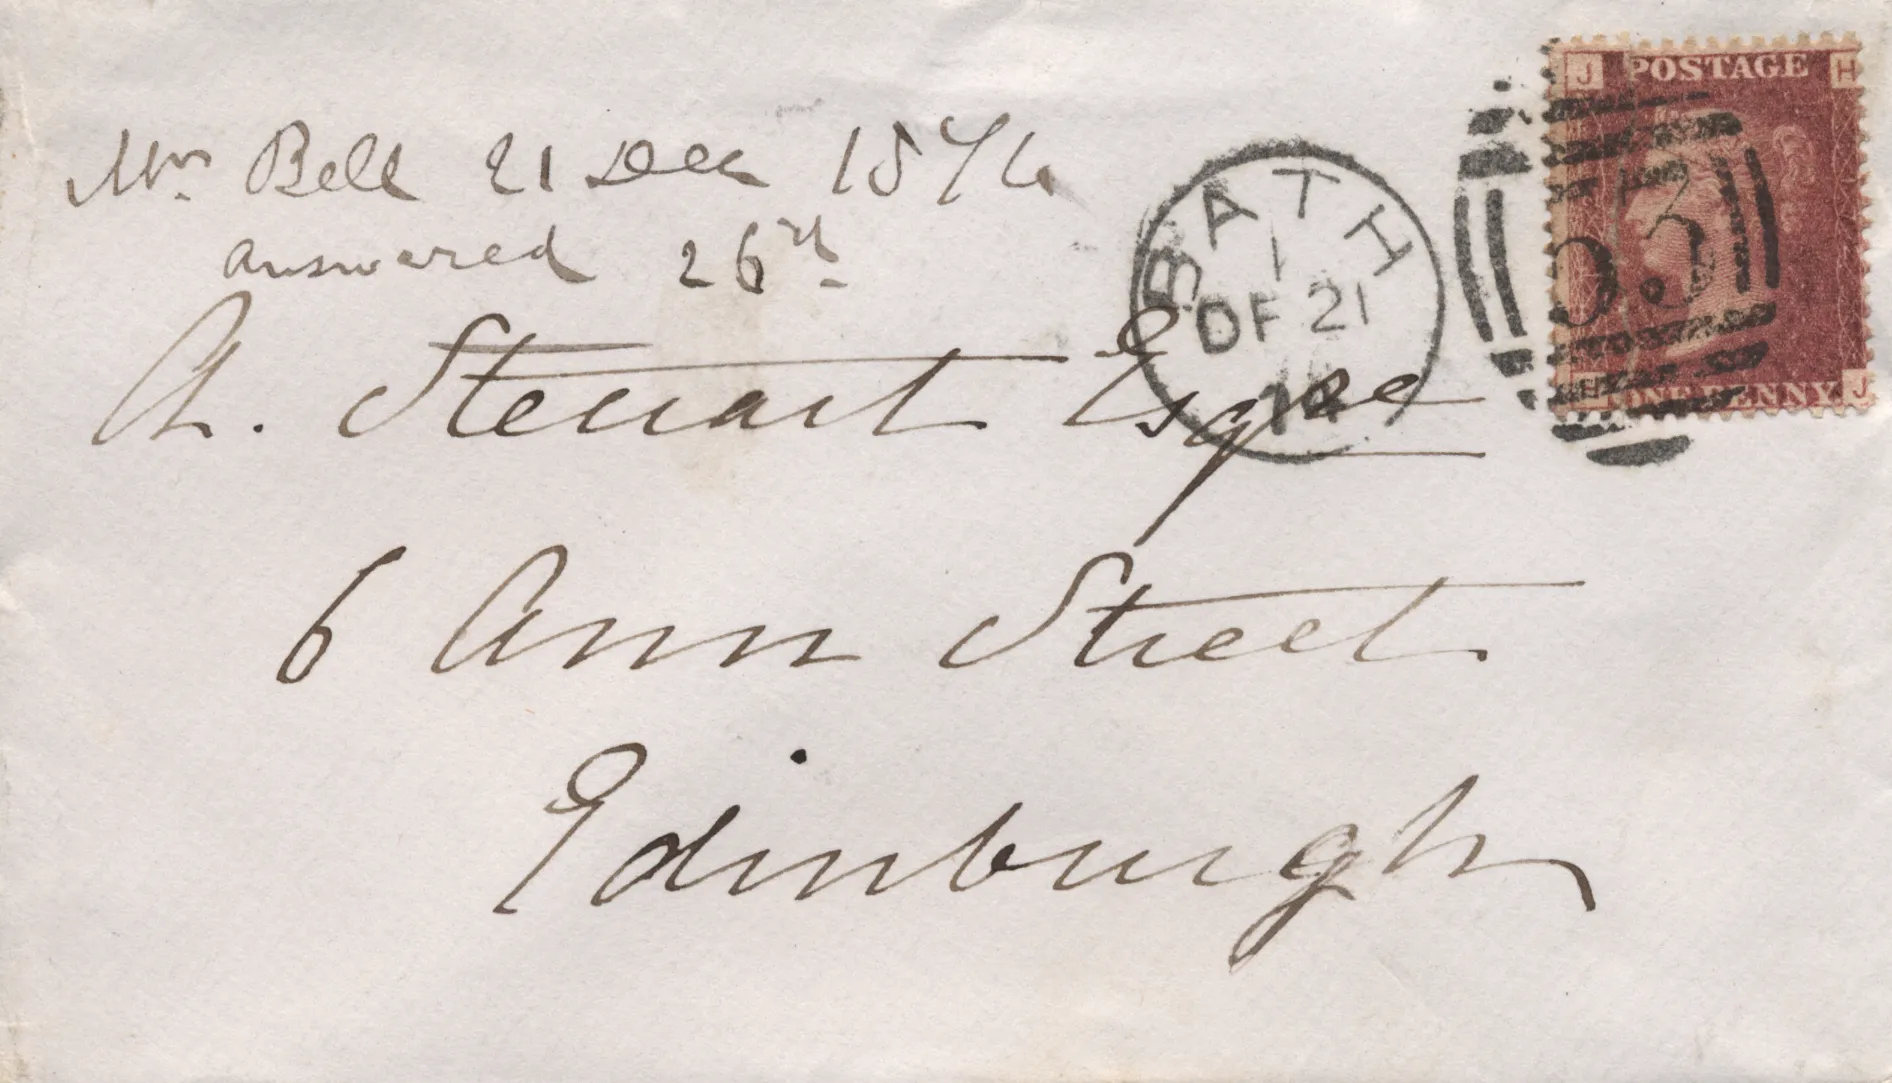 Mrs. Bell 21 Dec 1876
answered 26th
Ch. Steuart Esqre
6 Ann Street
Edinburgh
BATH
1
DE 21
J POSTAGE H
53
ONE PENNY J